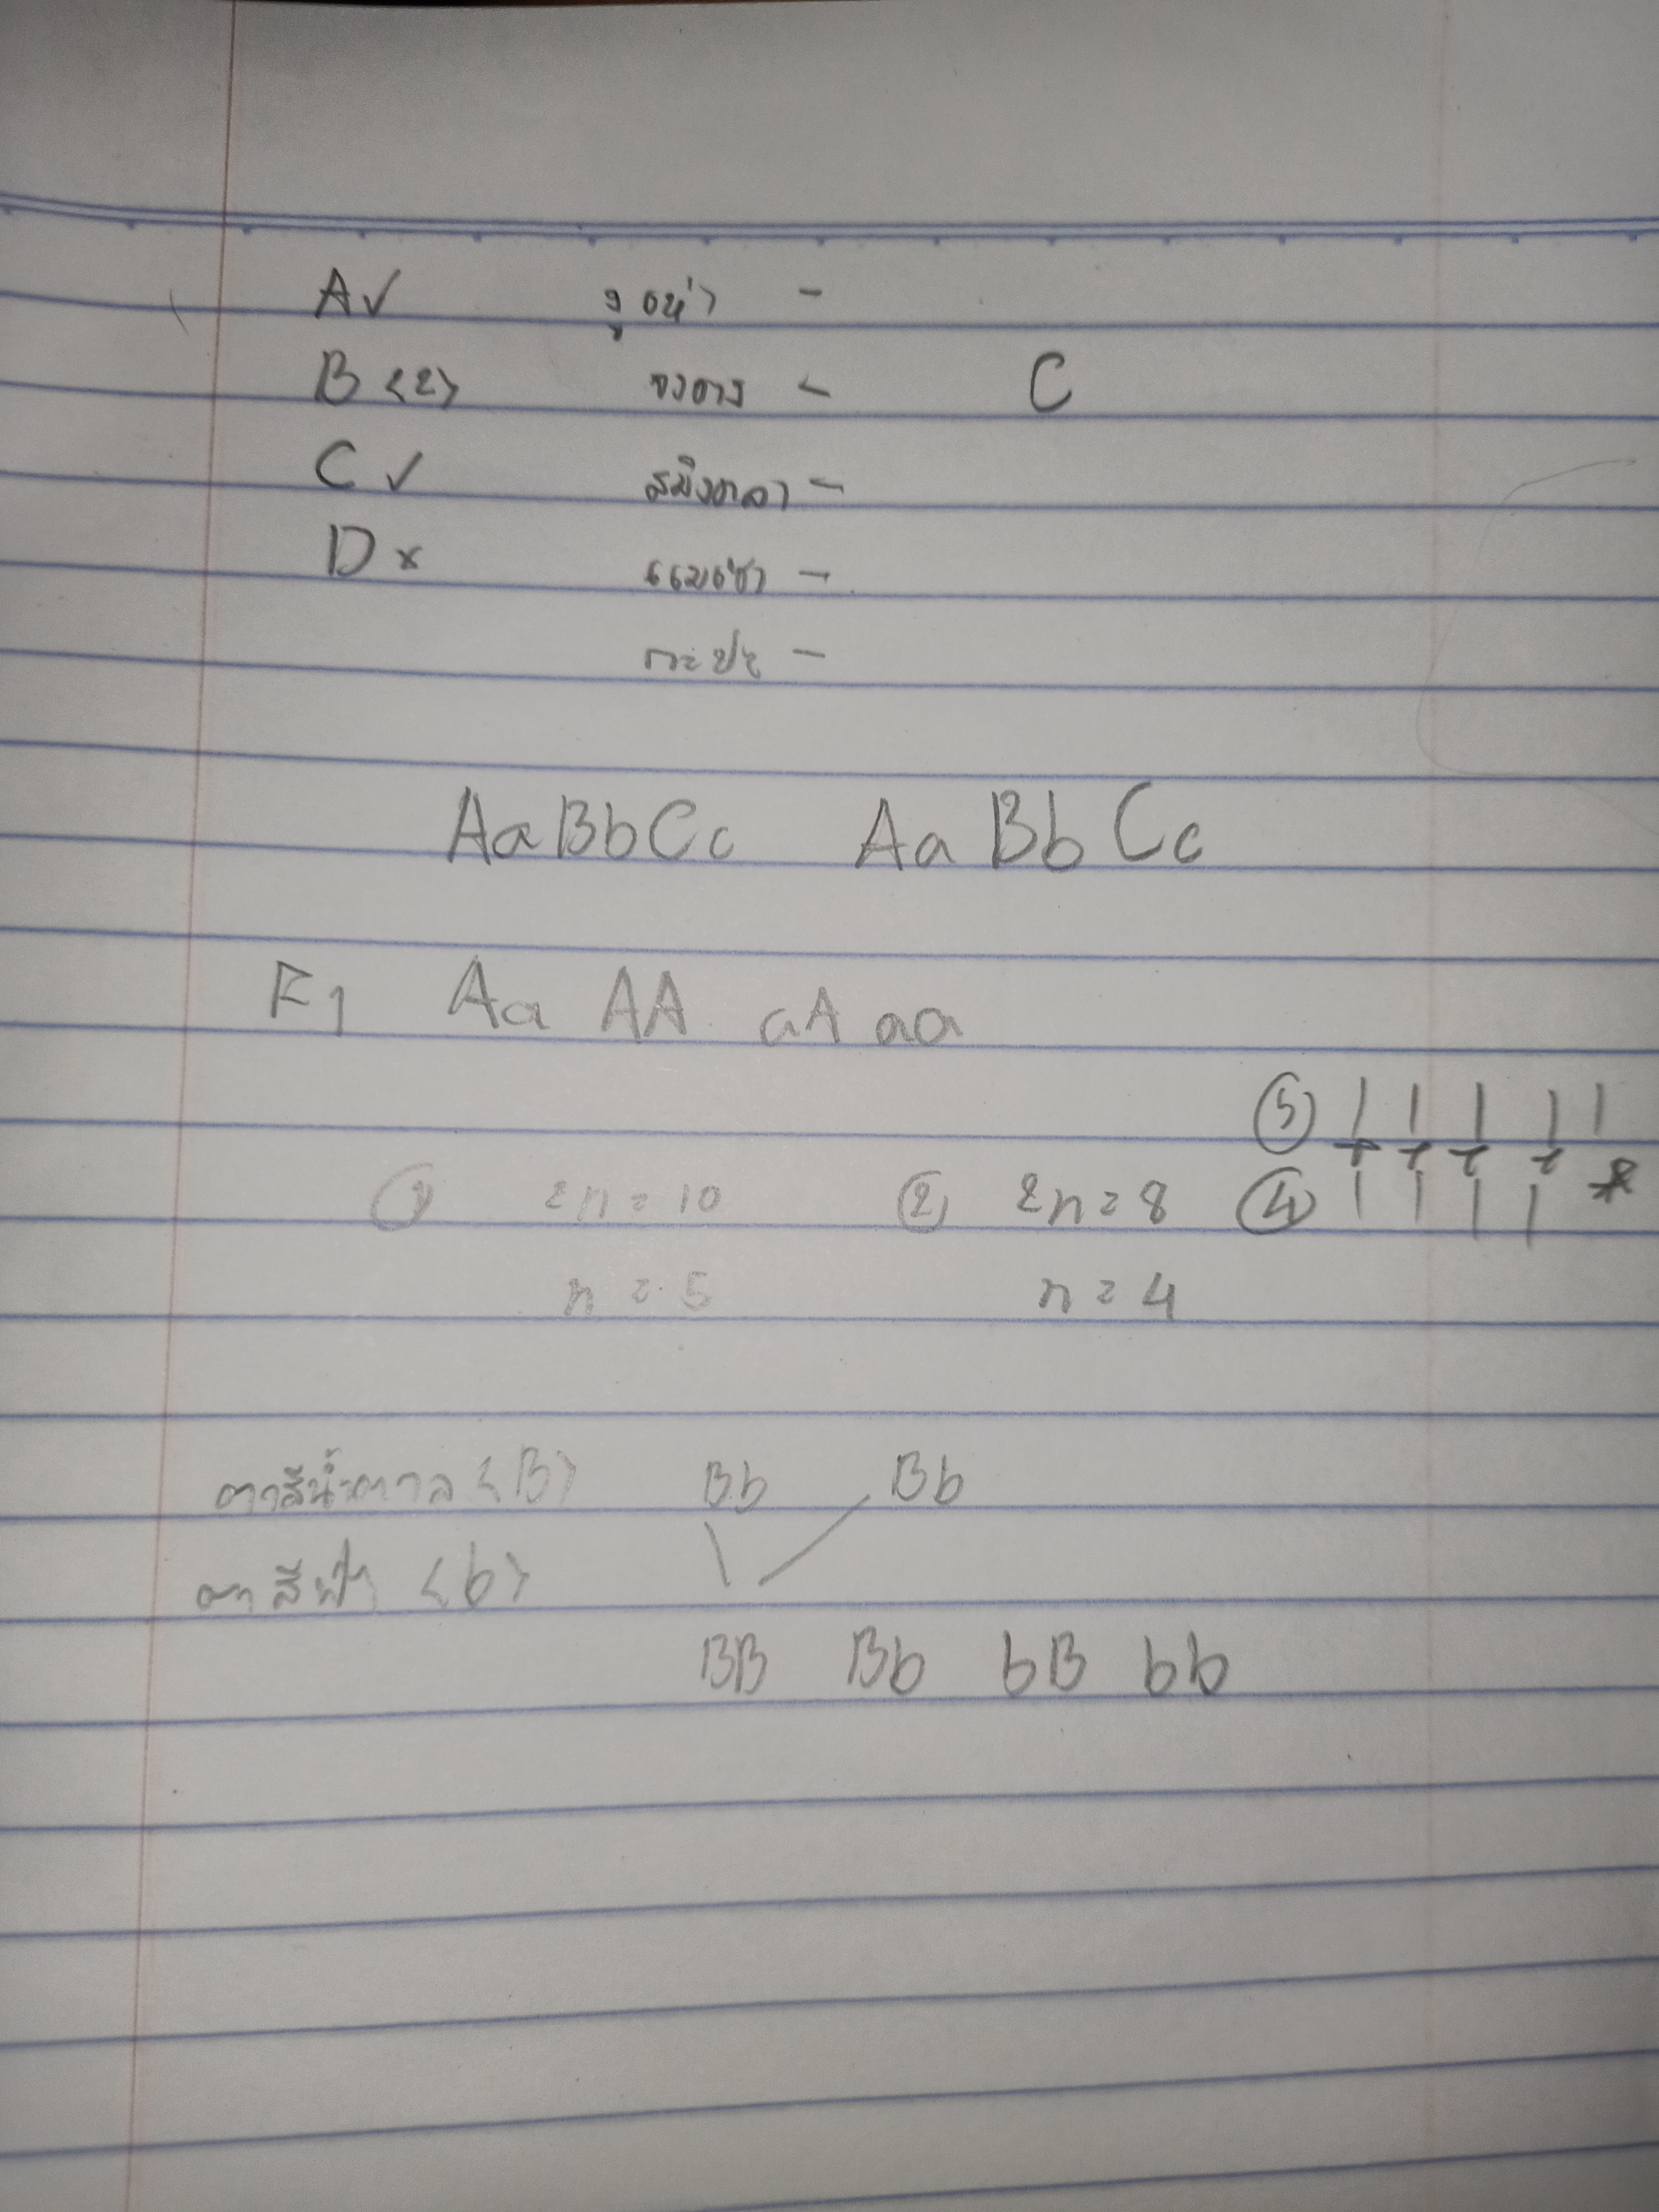 A✓ งูเห่า -
B <2> จงอาง - C
C ✓ สมิงคลา -
D × แมวเซา -
กะปะ -
AaBbCc AaBbCc
F1 Aa AA aA aa
⑤ | | | | |
① 2n = 10 ② 2n = 8 ④ | | | |
n = 5 n = 4
ตาสีน้ำตาล <B> Bb Bb
ตาสีฟ้า <b>
BB Bb bB bb